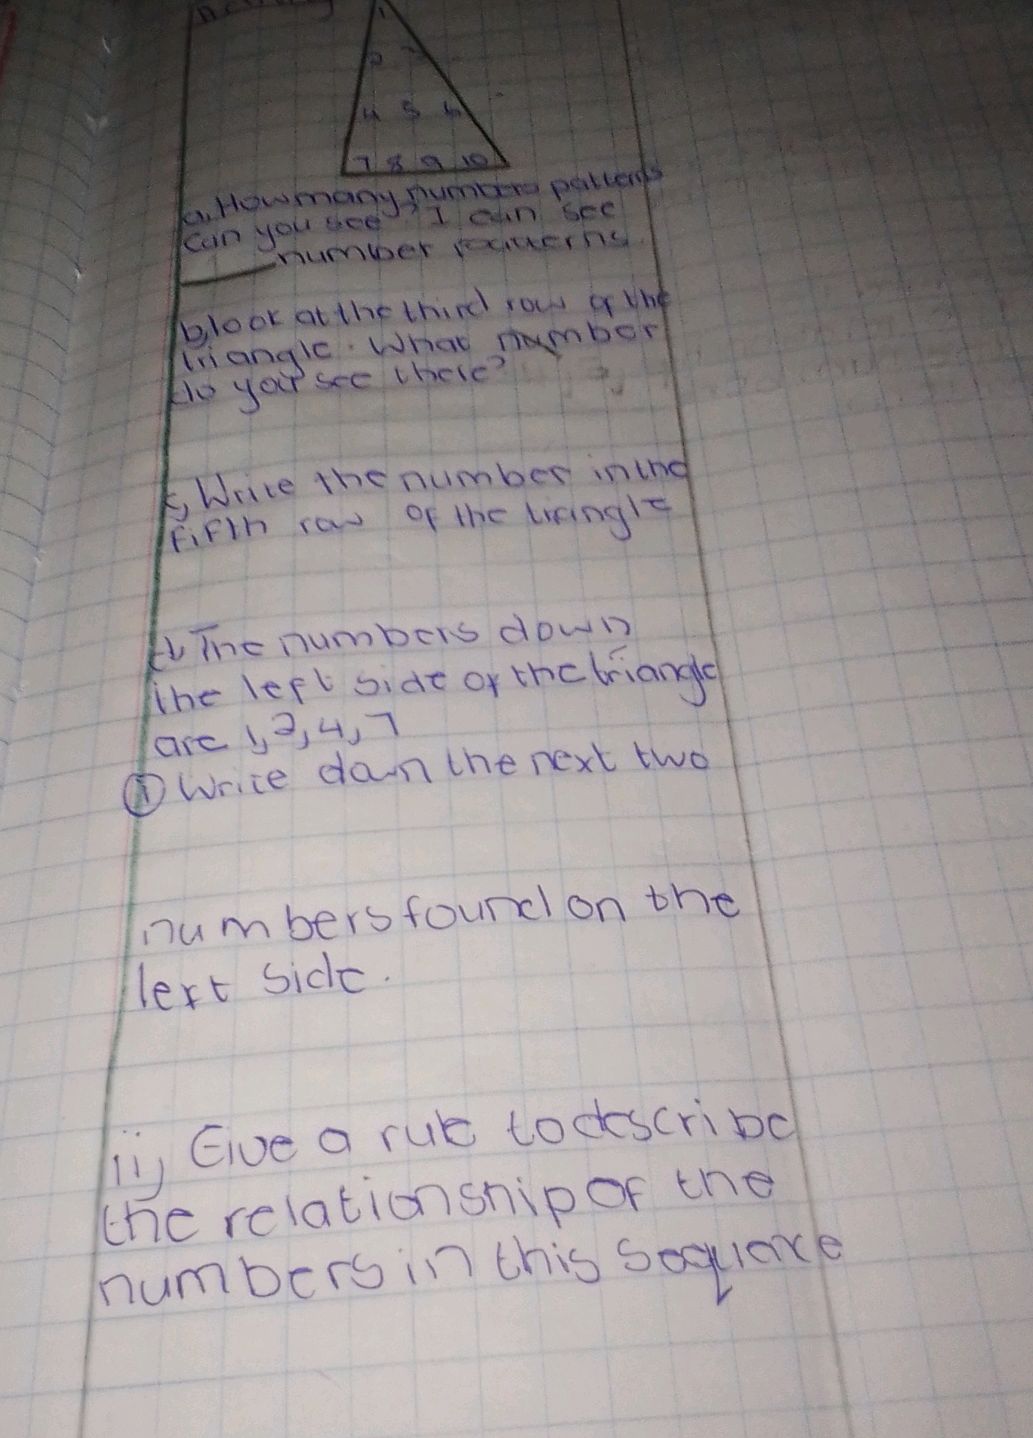 1
2 3
4 5 6
7 8 9 10
a, How many numbers patterns
Can you see? I can see
number patterns.
b, look at the third row of the
triangle. What number
do you see there?
c, Write the number in the
fifth row of the tringle
d, The numbers down
the left side of the triangle
are 1, 2, 4, 7
i Write down the next two
numbers found on the
left side.
ii, Give a rule to describe
the relationship of the
numbers in this